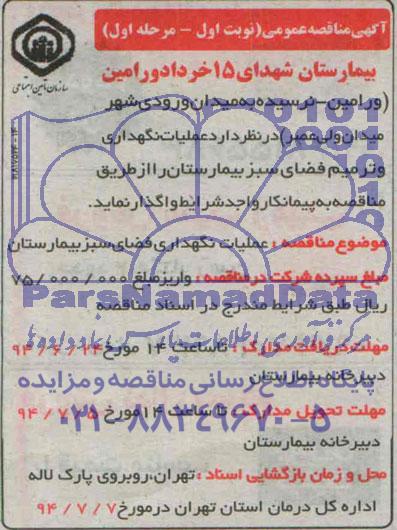 آگهی مناقصه عمومی (نوبت اول - مرحله اول)
بیمارستان شهدای ۱۵ خرداد ورامین
سازمان تأمین اجتماعی
(ورامین-نرسیده به میدان ورودی شهر
میدان ولی عصر) در نظر دارد عملیات نگهداری
و ترمیم فضای سبز بیمارستان را از طریق
مناقصه به پیمانکار واجد شرایط واگذار نماید.
موضوع مناقصه : عملیات نگهداری فضای سبز بیمارستان
مبلغ سپرده شرکت در مناقصه : واریز مبلغ ۷۵/۰۰۰/۰۰۰
ParsNamadData
ریال طبق شرایط مندرج در اسناد مناقصه
مرکز فرآوری اطلاعات پارس نماد داده ها
مهلت دریافت مدارک : تا ساعت ۱۴ مورخ ۹۴/۶/۲۴
دبیرخانه بیمارستان
پایگاه اطلاع رسانی مناقصه و مزایده
مهلت تحویل مدارک : تا ساعت ۱۴ مورخ ۹۴/۷/۵
۰۲۱-۸۸۳۴۹۶۷۰-۵
دبیرخانه بیمارستان
محل و زمان بازگشایی اسناد : تهران، روبروی پارک لاله
اداره کل درمان استان تهران در مورخ ۹۴/۷/۷